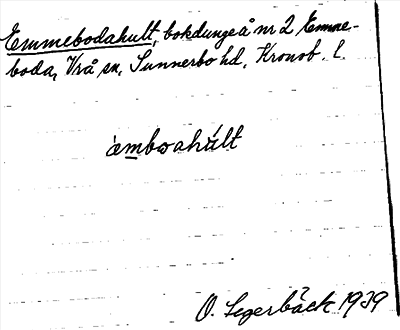 Emmebodahult, bokdunge å nr 2 Emme-
boda, Vrå sn, Sunnerbo hd, Kronob. l.
àmbωahúlt
O. Segerbäck 1929